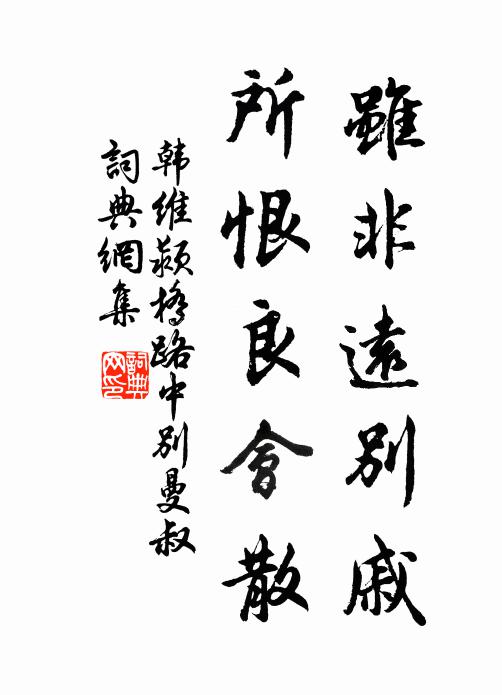 雖非遠別戚
所恨良會散
韩維颍橋路中別曼叔
詞典網集
詞典网印